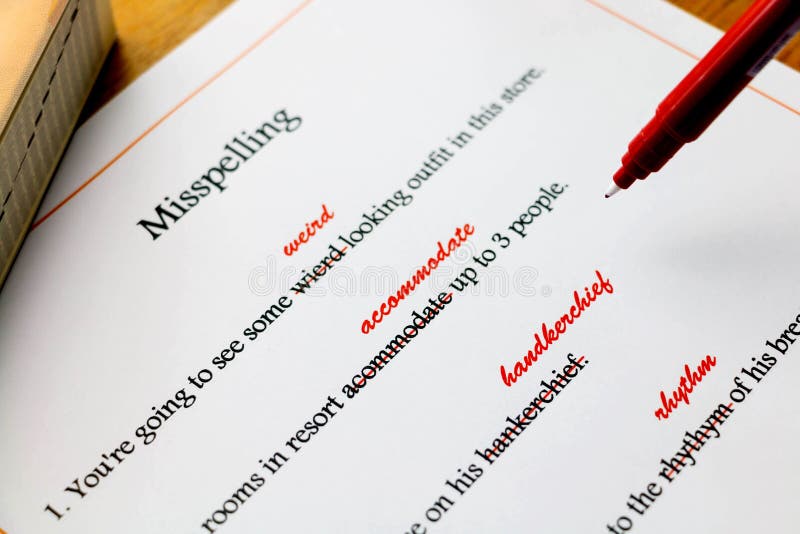 Misspelling
weird
1. You're going to see some wierd looking outfit in this store.
accommodate
rooms in resort acommodate up to 3 people.
handkerchief
e on his hankerchief.
rhythm
to the rhythym of his brea
dreamstime